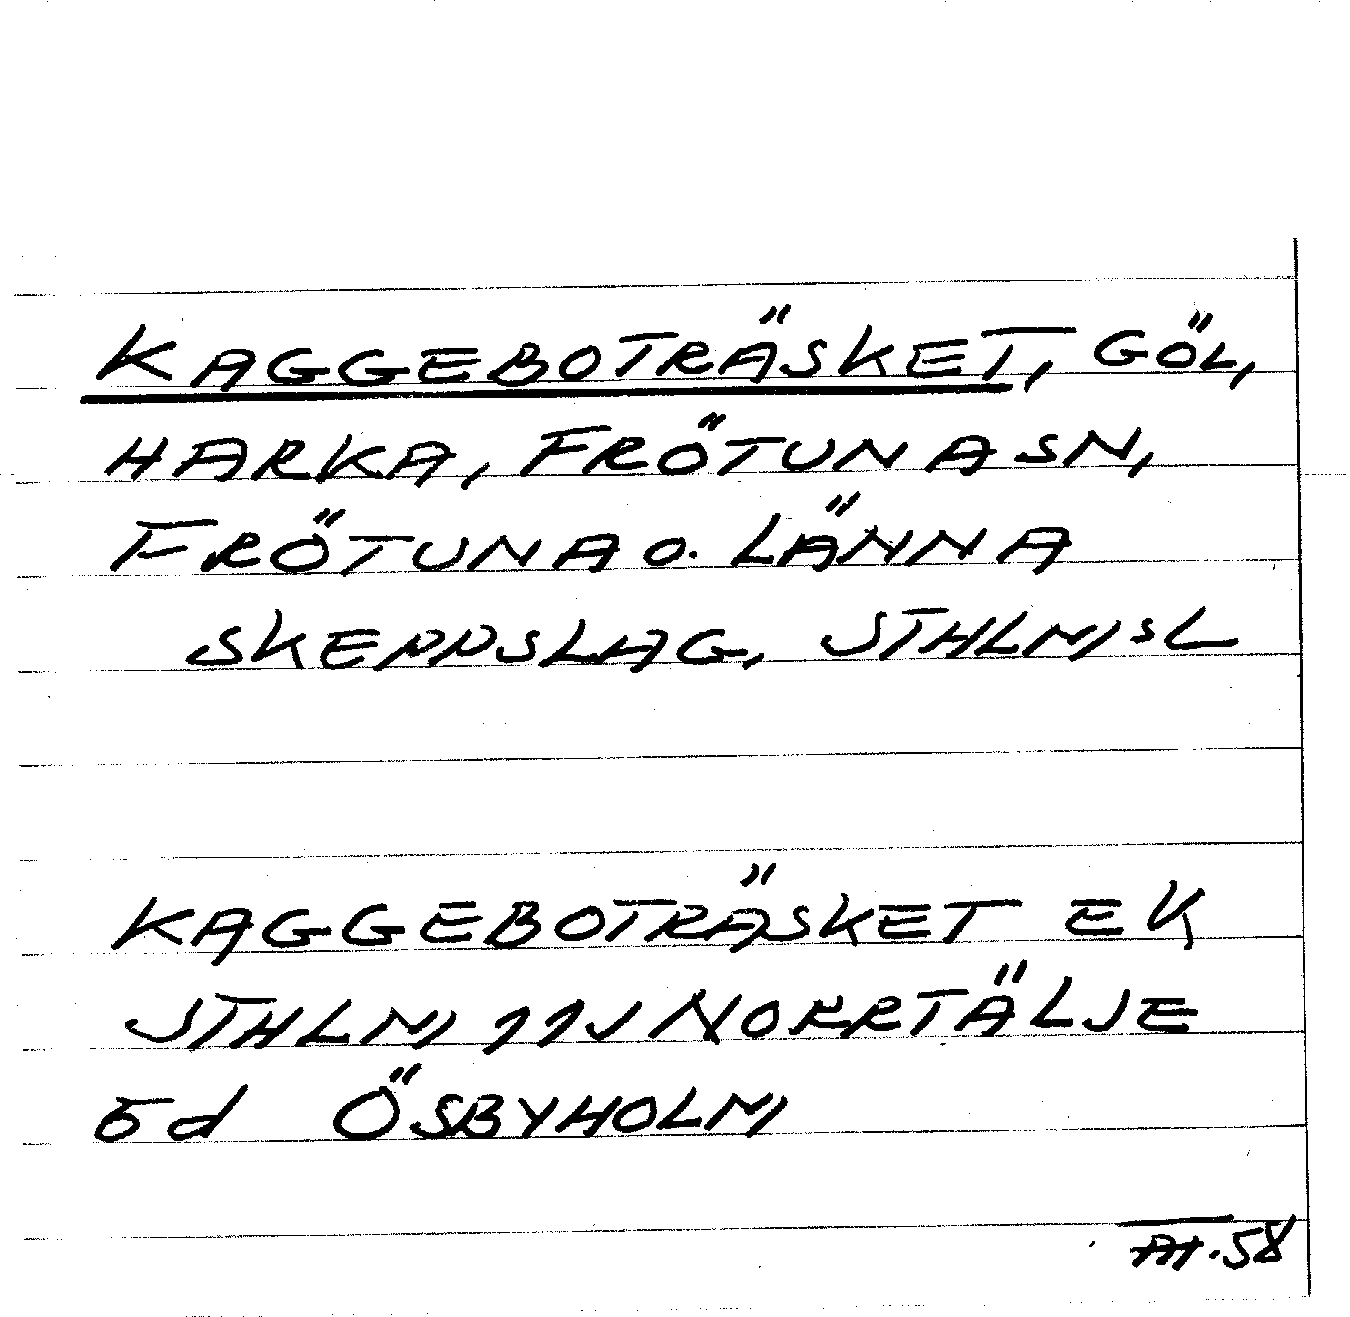 KAGGEBOTRÄSKET, GÖL,
HARKA, FRÖTUNA SN,
FRÖTUNA O. LÄNNA
SKEPPSLAG, STHLMSL
KAGGEBOTRÄSKET EK
STHLM 11J NORRTÄLJE
5d ÖSBYHOLM
.58